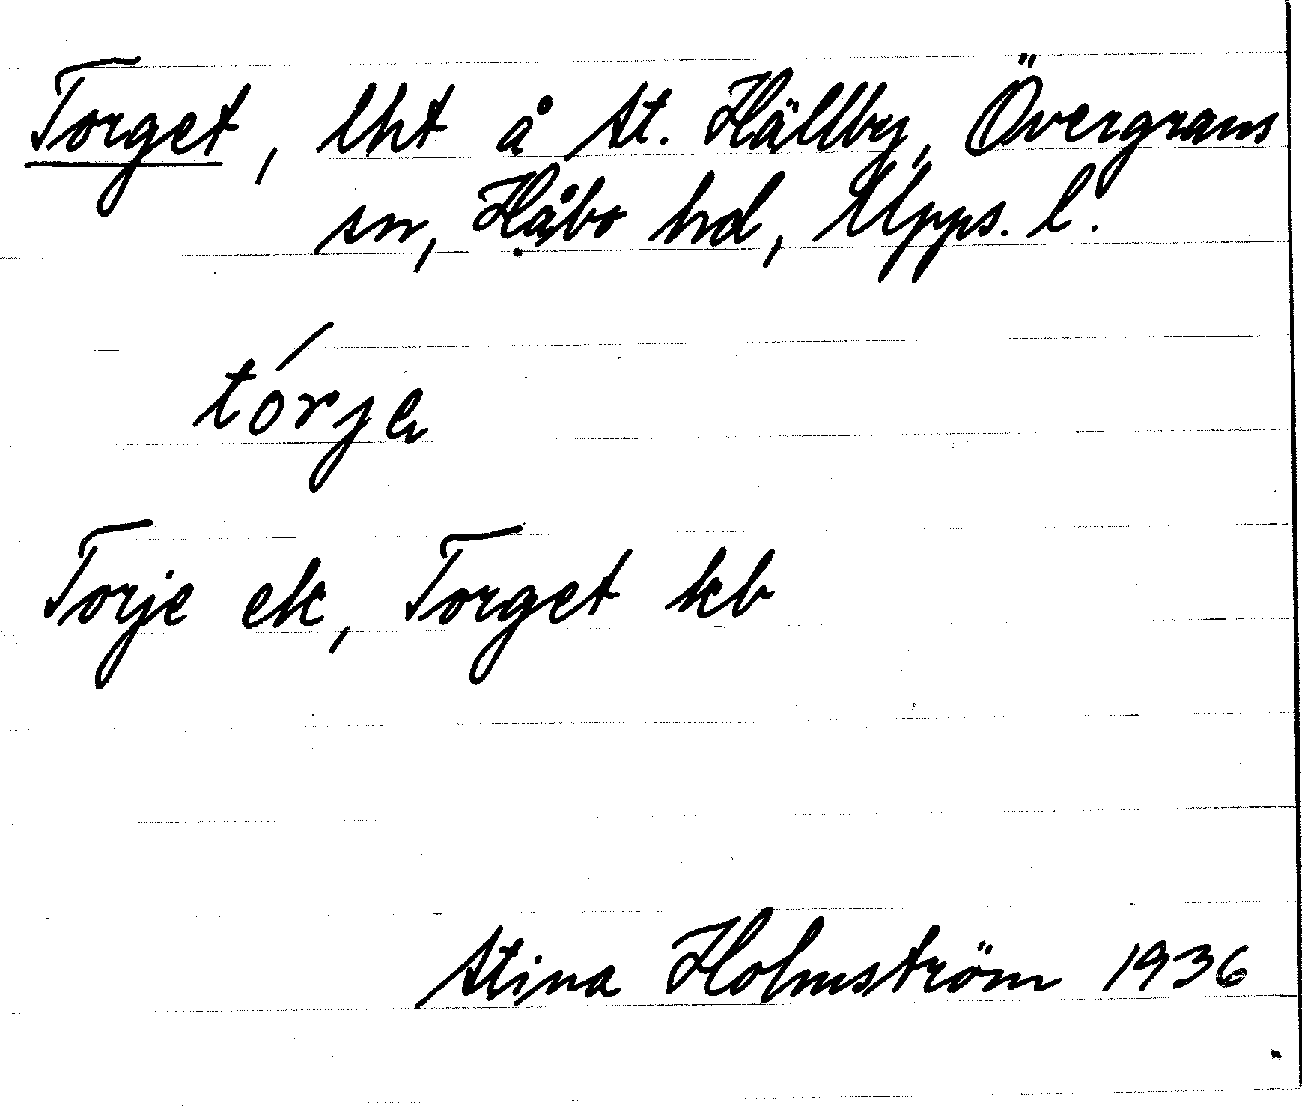 Torget, lht å St. Hällby, Övergrans
sn, Håbo hd, Upps. l.
tórje
Torje ek, Torget kb
Stina Holmström 1936